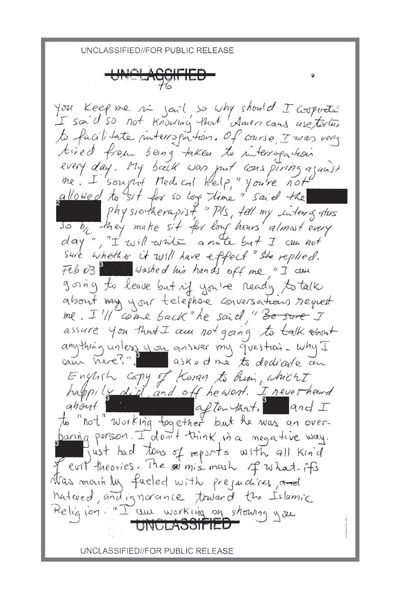 UNCLASSIFIED//FOR PUBLIC RELEASE
UNCLASSIFIED
76
you keep me in jail, so why should I cooperate
I said so not knowing that Americans use torture
to facilitate interrogation. Of course, I was very
tired from being taken to interrogation
every day. My back was just conspiring against
me. I sought Medical Help, "You're not
allowed to sit for so long time" said the
physiotherapist, "Pls, tell my interrogators
so b/c they make sit for long hours almost every
day", "I will write a note but I am not
sure whether it will have effect" she replied.
Feb 03 washed his hands off me, "I am
going to leave but if you're ready to talk
about my your telephone conversations request
me. I'll come back" he said, "Be sure I
assure you that I am not going to talk about
anything unless you answer my question. Why I
am here?". asked me to dedicate an
English copy of Koran to him, which I
happily did, and off he went. I never heard
about after that. and I
to "not" working together but he was an over-
person. I don't think in a negative way.
just had tons of reports with all kind
of evil theories. The mis mash of what-ifs
was mainly fueled with prejudices, and
hatered, and ignorance toward the Islamic
Religion. "I am working on showing you
UNCLASSIFIED
UNCLASSIFIED//FOR PUBLIC RELEASE